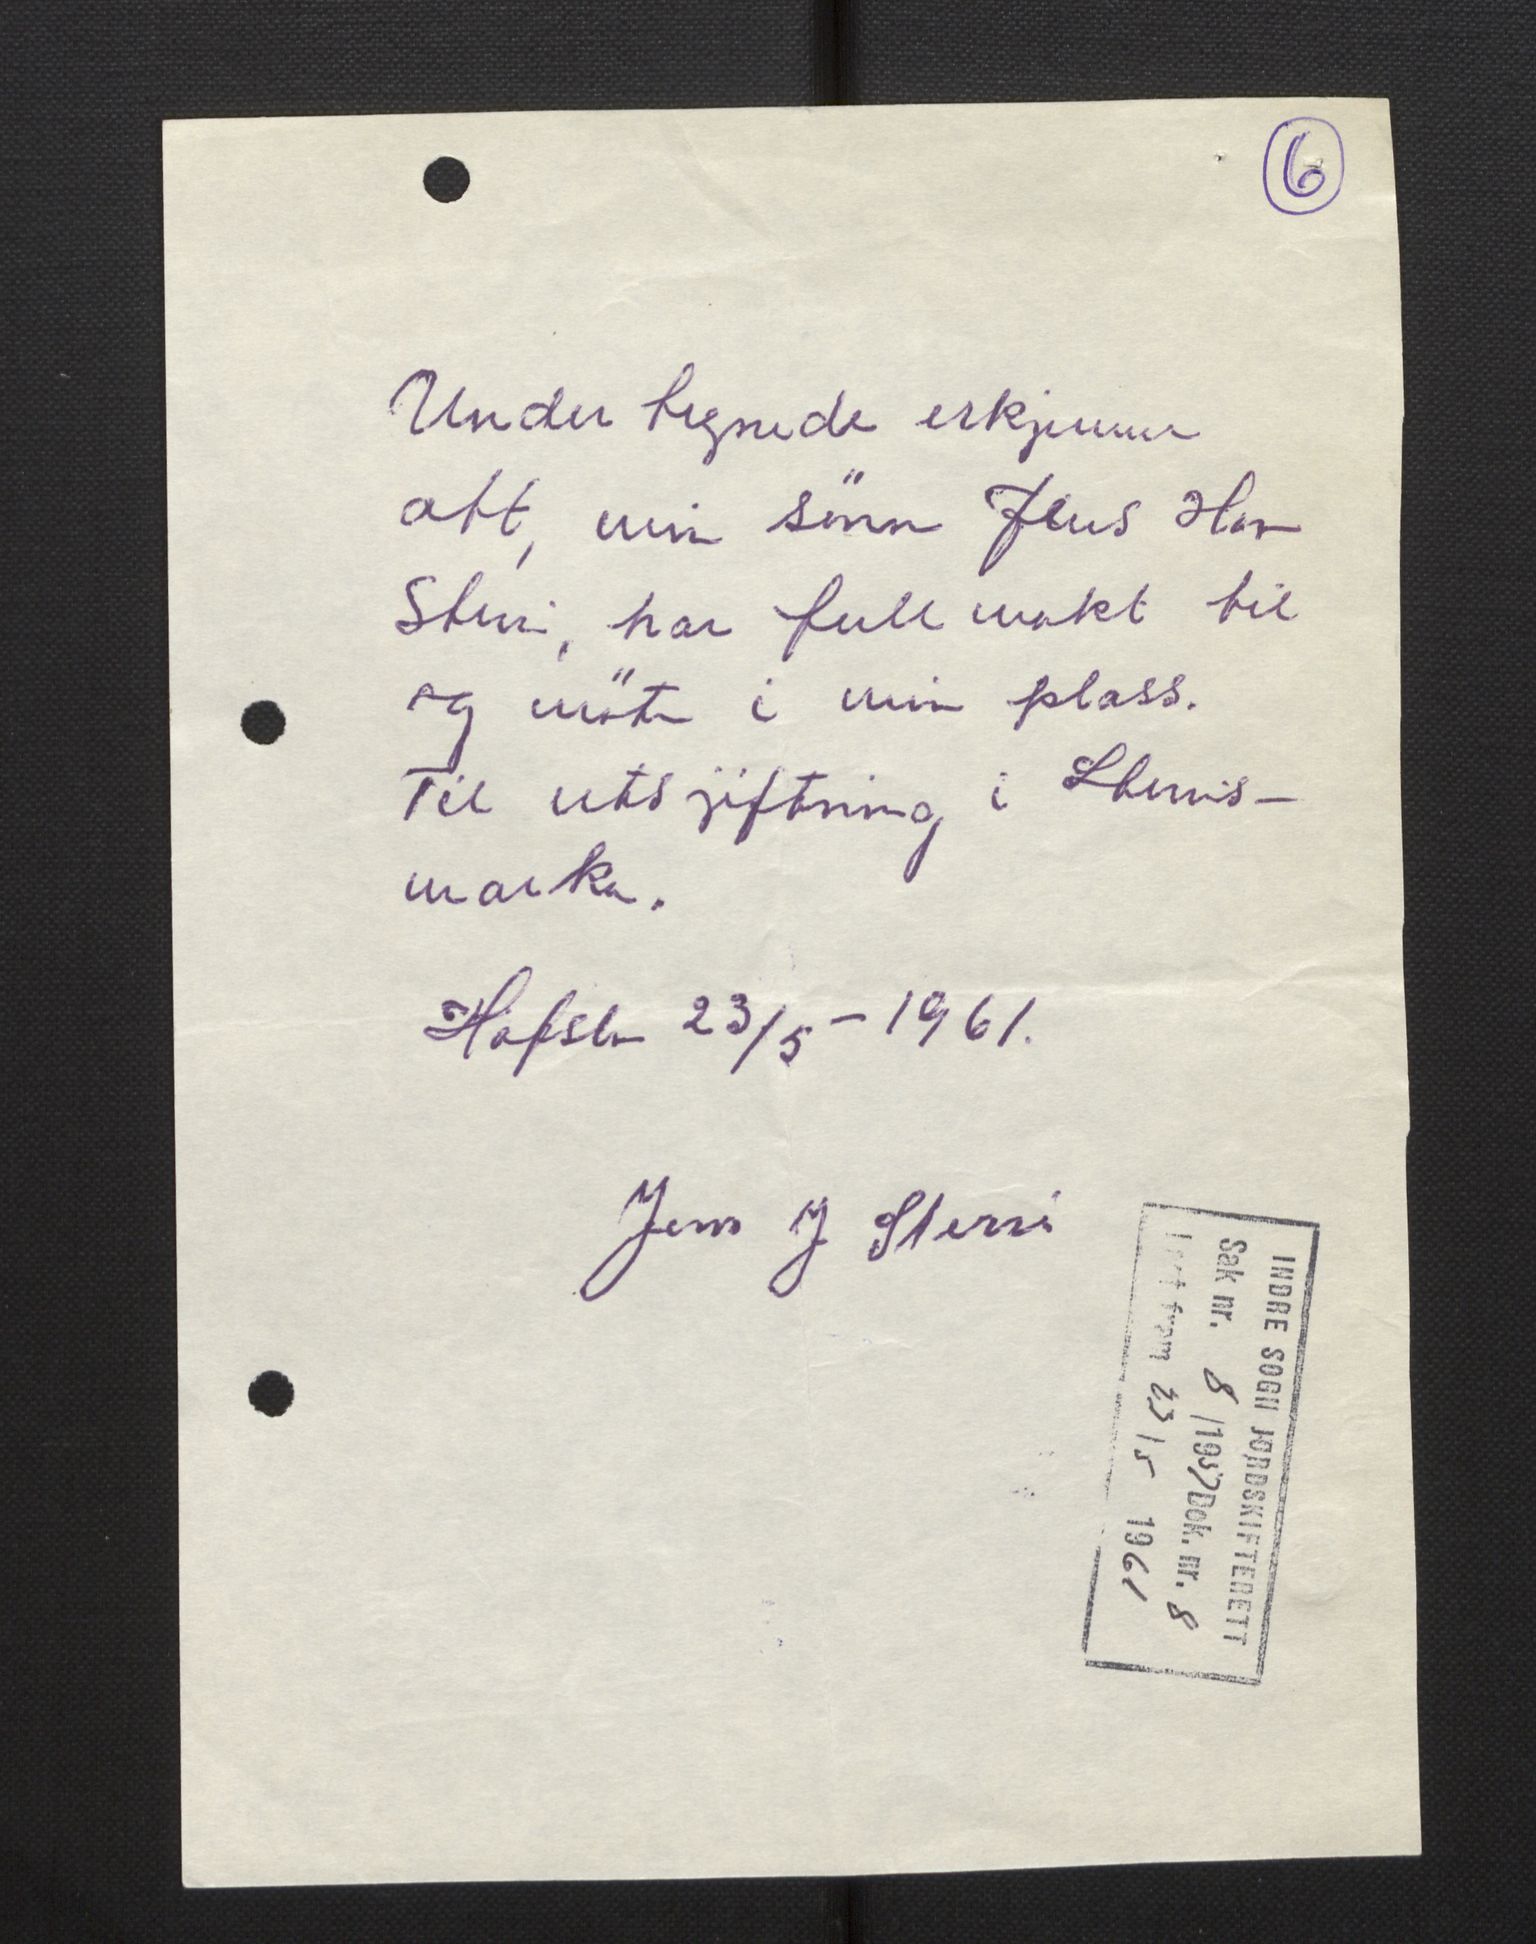 6
Under tegnede erkjenner
att, min sönn Jens Har
Sterri, har full makt til
og möte i min plass.
Til utsjiftning i Sterris-
marka.
Hafslo 23/5 - 1961.
Jens J Sterri
INDRE SOGN JORDSKIFTERETT
Sak nr. 8/1957 Dok. nr. 8
fram 23/5 1961